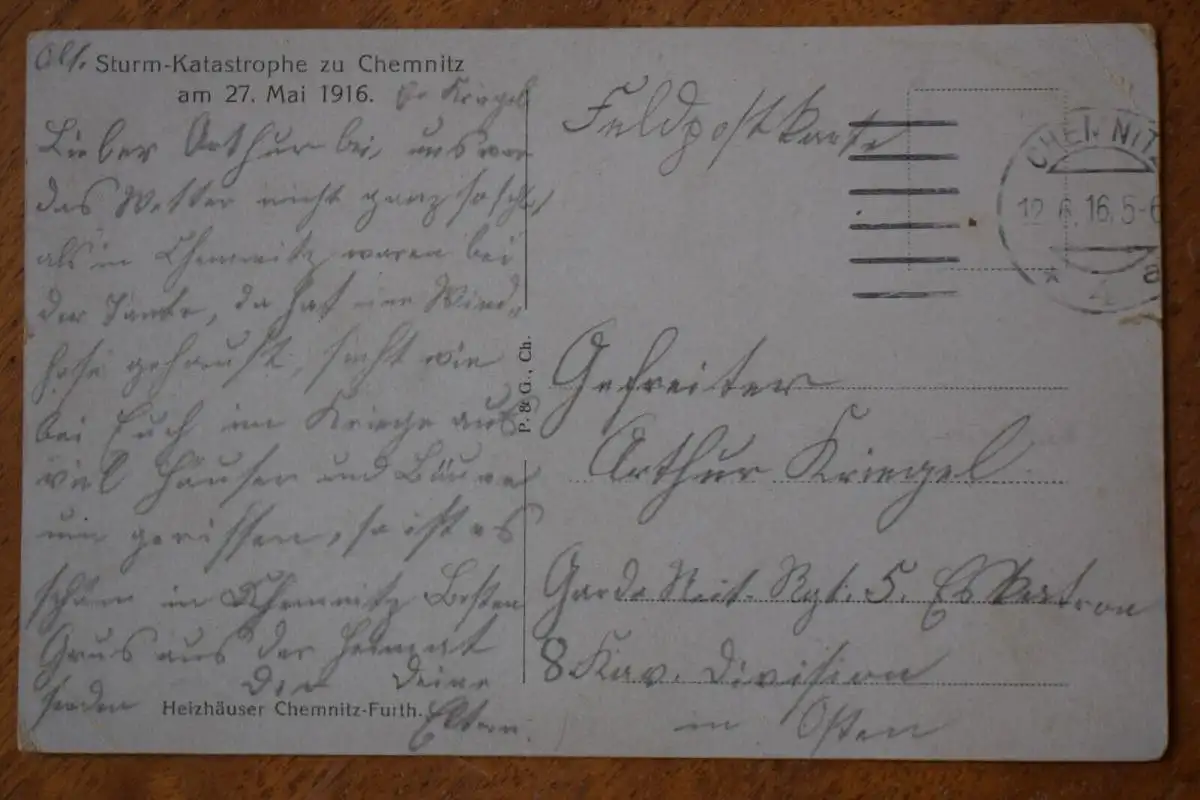 Abs.
Sturm-Katastrophe zu Chemnitz
am 27. Mai 1916.
Kriegel
Lieber Arthur bei uns war
das Wetter nicht ganz so schl.
als in Chemnitz, waren bei
der Tante, da hat eine Wind-
hose gehaust, sieht wie
bei Euch im Kriege aus
viel Häuser und Bäume
um gerissen, so ist es
schlim in Chemnitz Besten
Grus aus der Heimat
senden Dir Deine
Eltern.
Heizhäuser Chemnitz-Furth.
P. & G., Ch.
Feldpostkarte
CHEMNITZ
12.6.16.5-6
* 4 a
Gefreiter
Arthur Kriegel
Garde Reit. Rgt. 5. Eskatron
8 Kav. Division
in Osten